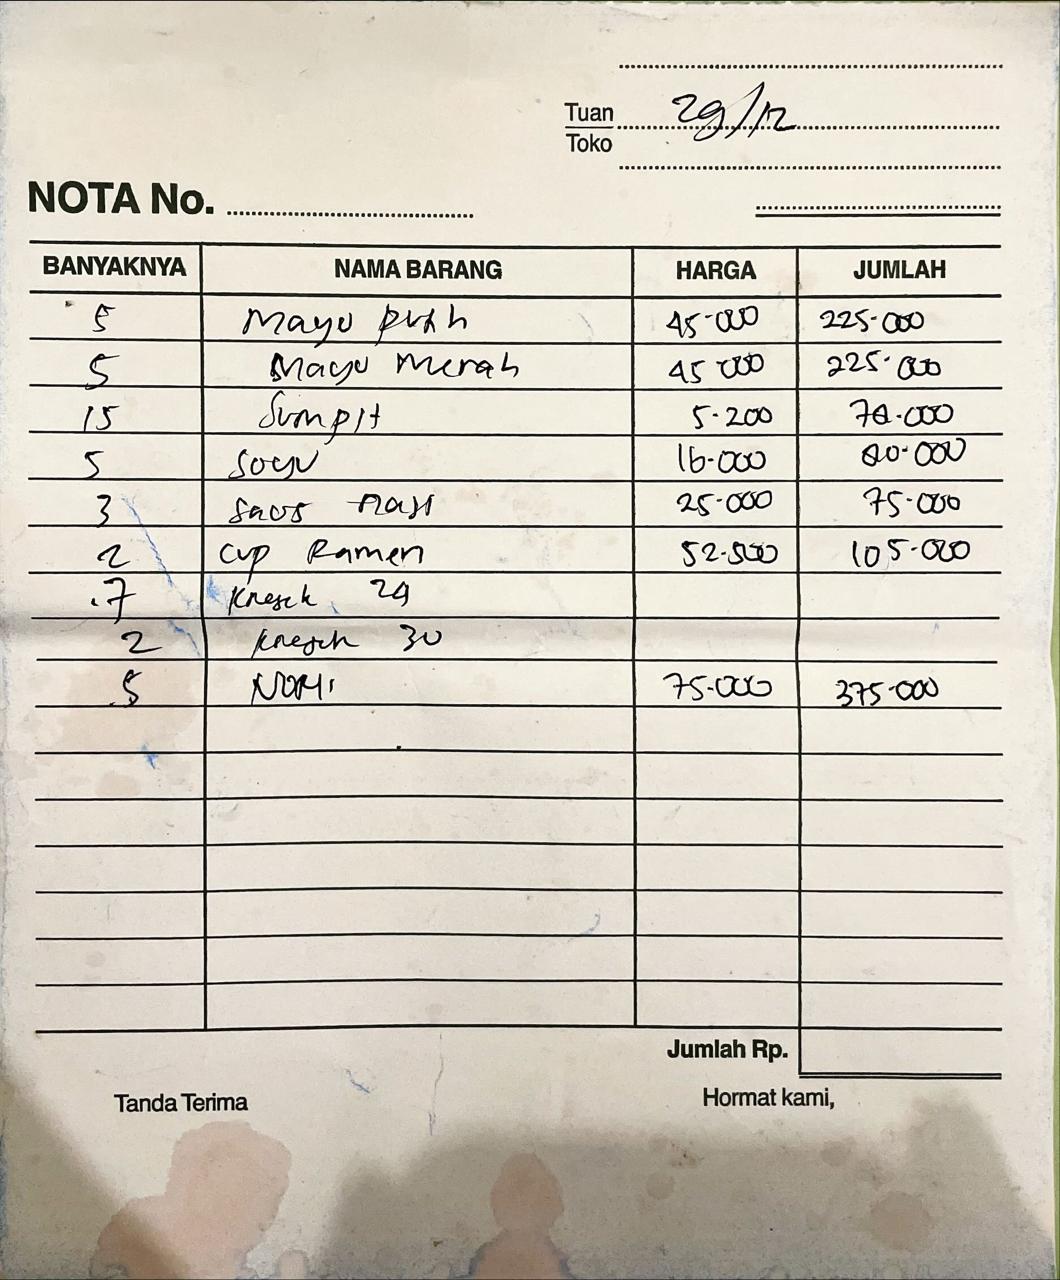 Tuan 29/12
Toko
NOTA No.
BANYAKNYA NAMA BARANG HARGA JUMLAH
5 Mayo putih 45.000 225.000
5 Mayo Merah 45 000 225.000
15 Sumpit 5.200 78.000
5 Soyu 16.000 80.000
3 Saos 25.000 75.000
2 Cup Ramen 52.500 105.000
7 Kresek 24
2 Kresek 30
5 NORI 75.000 375.000
Jumlah Rp.
Tanda Terima Hormat kami,